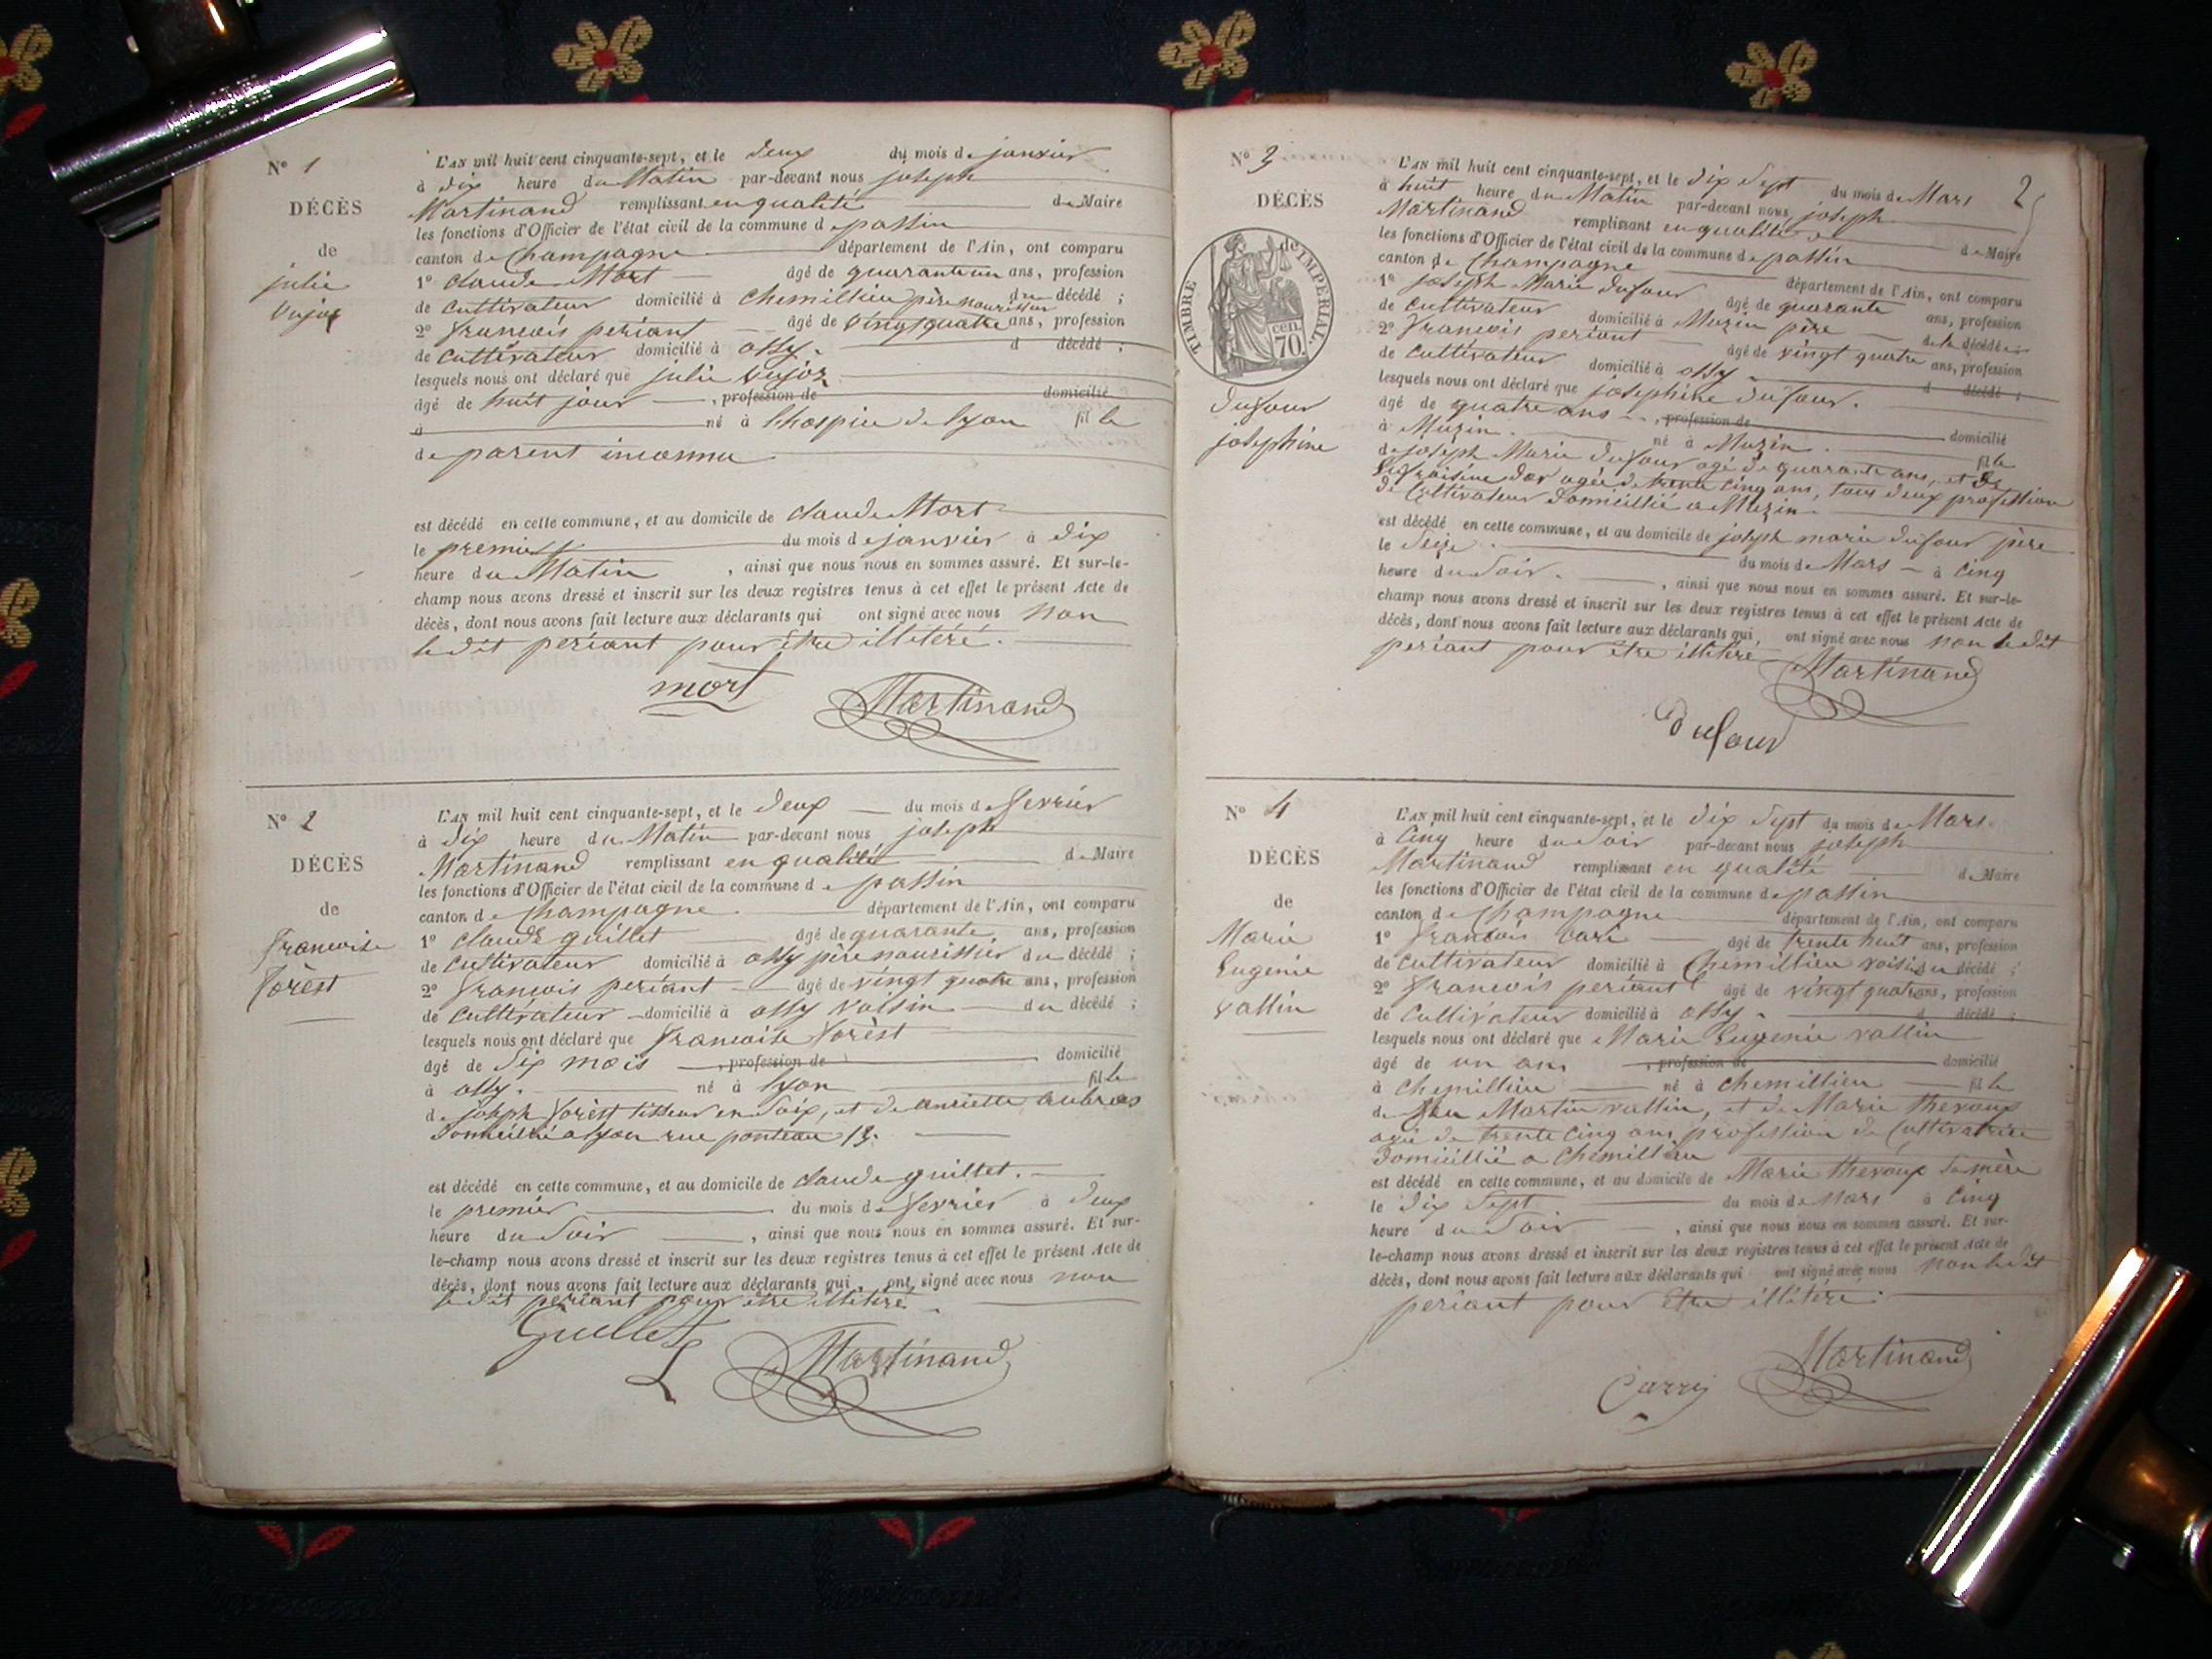 N° 1
DÉCÈS
de
julie
Vujoz
L'AN mil huit cent cinquante-sept, et le deux du mois de janvier
à dix heure du Matin par-devant nous joseph
Martinand remplissant en qualité de Maire
les fonctions d'Officier de l'état civil de la commune de passin
canton de Champagne département de l'Ain, ont comparu
1° claude Mort âgé de quarante un ans, profession
de cultivateur domicilié à Chemillieu père nourissier du décédé ;
2° francois periant âgé de vingt quatre ans, profession
de cultivateur domicilié à ossy. d décédé ;
lesquels nous ont déclaré que julie Vujoz
âgé de huit jour , profession de domicilié
à né à l'hospice de lyon fille
de parent inconnu
est décédé en cette commune, et au domicile de claude Mort
le premier du mois de janvier à dix
heure du Matin , ainsi que nous nous en sommes assuré. Et sur-le-
champ nous avons dressé et inscrit sur les deux registres tenus à cet effet le présent Acte de
décès, dont nous avons fait lecture aux déclarants qui ont signé avec nous non
le dit periant pour être illitéré.
mort Martinand
N° 2
DÉCÈS
de
francoise
forèst
L'AN mil huit cent cinquante-sept, et le deux du mois de fevrier
à dix heure du Matin par-devant nous joseph
Martinand remplissant en qualité de Maire
les fonctions d'Officier de l'état civil de la commune de passin
canton de Champagne département de l'Ain, ont comparu
1° claude guillet âgé de quarante ans, profession
de cultivateur domicilié à ossy père nourissier du décédé ;
2° francois periant âgé de vingt quatre ans, profession
de cultivateur domicilié à ossy voisin du décédé ;
lesquels nous ont déclaré que francoise forèst
âgé de six mois , profession de domicilié
à ossy. né à lyon fille
de joseph forèst tisseur en soix, et de anriette
domicilié a lyon rue ponteau 13.
est décédé en cette commune, et au domicile de claude guillet.
le premier du mois de fevrier à deux
heure du soir , ainsi que nous nous en sommes assuré. Et sur-
le-champ nous avons dressé et inscrit sur les deux registres tenus à cet effet le présent Acte de
décès, dont nous avons fait lecture aux déclarants qui ont signé avec nous non
le dit periant pour être illitéré.
Guillet Martinand
2
N° 3
DÉCÈS
TIMBRE IMPÉRIAL
de
70 cen.
dufour
josephine
L'AN mil huit cent cinquante-sept, et le dix sept du mois de Mars
à huit heure du Matin par-devant nous joseph
Martinand remplissant en qualité de Maire
les fonctions d'Officier de l'état civil de la commune de passin
canton de Champagne département de l'Ain, ont comparu
1° joseph Marie dufour âgé de quarante ans, profession
de cultivateur domicilié à Muzin père de la décédée
2° francois periant âgé de vingt quatre ans, profession
de cultivateur domicilié à ossy d décédé ;
lesquels nous ont déclaré que josephine dufour.
âgé de quatre ans , profession de domicilié
à Muzin. né à Muzin. fille
de joseph Marie dufour agé de quarante ans, et de
agée de trente cinq ans, tous deux profession
de Cultivateur domicillié a Muzin.
est décédé en cette commune, et au domicile de joseph marie dufour père
le seize. du mois de Mars à cinq
heure du soir. , ainsi que nous nous en sommes assuré. Et sur-le-
champ nous avons dressé et inscrit sur les deux registres tenus à cet effet le présent Acte de
décès, dont nous avons fait lecture aux déclarants qui ont signé avec nous non le dit
periant pour être illitéré
Martinand
dufour
N° 4
DÉCÈS
de
Marie
Eugenie
vallin
L'AN mil huit cent cinquante-sept, et le dix sept du mois de Mars.
à cinq heure du soir par-devant nous joseph
Martinand remplissant en qualité de Maire
les fonctions d'Officier de l'état civil de la commune de passin
canton de Champagne département de l'Ain, ont comparu
1° francois âgé de trente huit ans, profession
de cultivateur domicilié à Chemillieu voisin du décédé ;
2° francois periant âgé de vingt quatre ans, profession
de Cultivateur domicilié à ossy. d décédé ;
lesquels nous ont déclaré que Marie Eugenie vallin
âgé de un an , profession de domicilié
à Chemillieu né à chemillieu fille
de feu Martin vallin, et de Marie thevoux
agée de trente cinq ans, profession de Cultivatrice
domicillié a Chemillieu
est décédé en cette commune, et au domicile de Marie thevoux sa mère
le dix sept du mois de Mars à cinq
heure du soir , ainsi que nous nous en sommes assuré. Et sur-
le-champ nous avons dressé et inscrit sur les deux registres tenus à cet effet le présent Acte de
décès, dont nous avons fait lecture aux déclarants qui ont signé avec nous non le dit
periant pour être illitéré.
Martinand